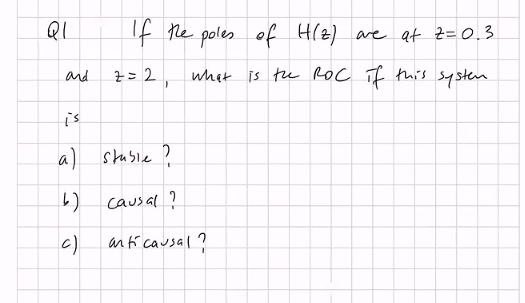 Q1 If the poles of H(z) are at z=0.3
and z=2, what is the ROC if this system
is
a) stable?
b) causal?
c) anticausal?